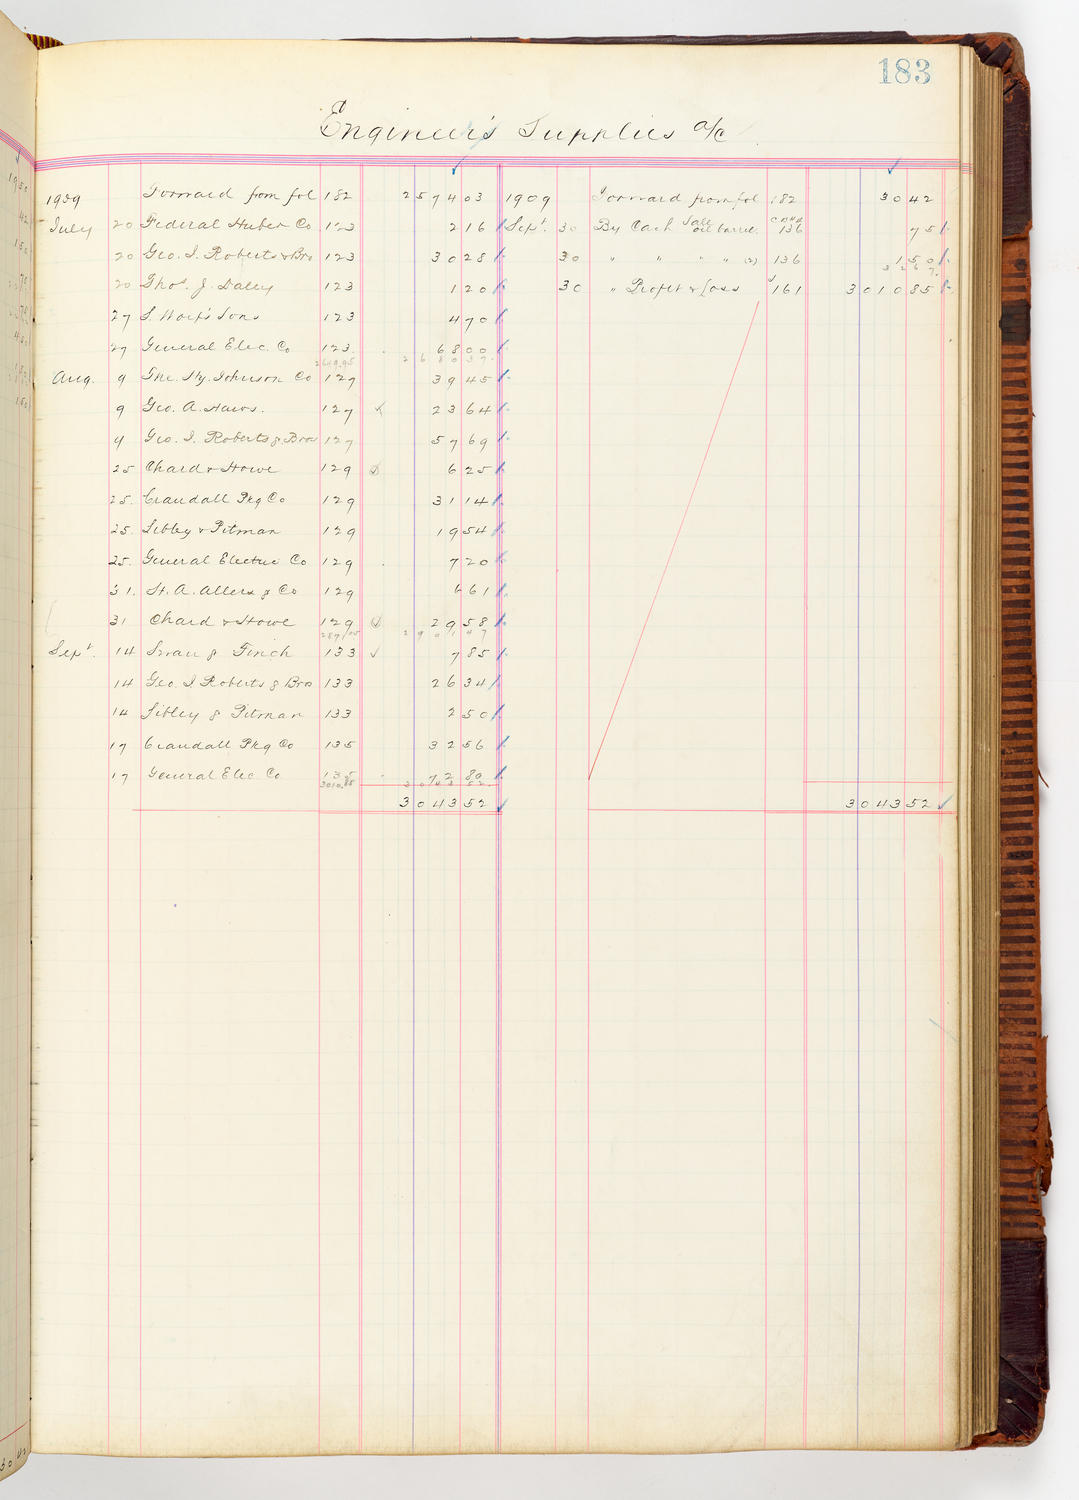 183
Engineer's Supplies a/c
1909 Forward from fol 182 2574 03
July 20 Federal Huber Co 123 2 16
20 Geo. I. Roberts & Bro 123 30 28
20 Thos. J. Daley 123 1 20
27 S. Hoef's Sons 123 4 70
27 General Elec. Co 123 68 00
2649.95 2680 37
Aug. 9 The. Hy. Johnson Co 127 39 45
9 Geo. A. Haws. 127 23 64
9 Geo. I. Roberts & Bros 127 57 69
25 Chard & Howe 129 6 25
25. Crandall Pkg Co 129 31 14
25. Sibley & Pitman 129 19 54
25. General Electric Co 129 7 20
31. H. A. Allers & Co 129 6 61
31 Chard & Howe 129 29 58
2871.05 2901 47
Sept. 14 Swan & Finch 133 7 85
14 Geo. I Roberts & Bros 133 26 34
14 Sibley & Pitman 133 2 50
17 Crandall Pkg Co 135 32 56
17 General Elec. Co 135 72 80
3010.85 3043 52
3043 52
1909 Forward from fol 182 30 42
Sept. 30 By Cash Sale oil barrel. 136 75
30 " " " " (2) 136 1 50
32 67
30 " Profit & Loss 161 3010 85
3043 52